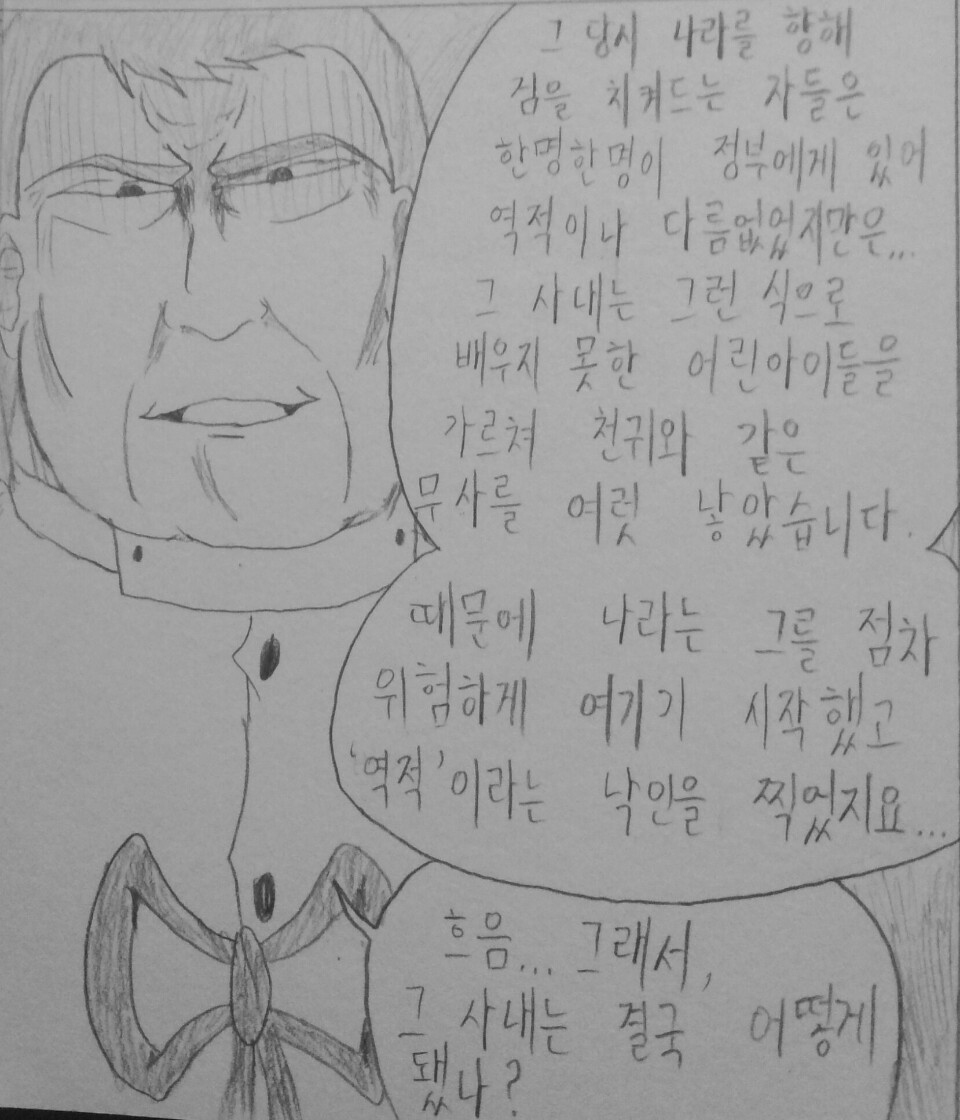 그 당시 나라를 향해
검을 치켜드는 자들은
한명한명이 정부에게 있어
역적이나 다름없었지만은...
그 사내는 그런 식으로
배우지 못한 어린아이들을
가르쳐 천귀와 같은
무사를 여럿 낳았습니다.
때문에 나라는 그를 점차
위험하게 여기기 시작했고
'역적'이라는 낙인을 찍었지요...
흐음... 그래서,
그 사내는 결국 어떻게
됐나?